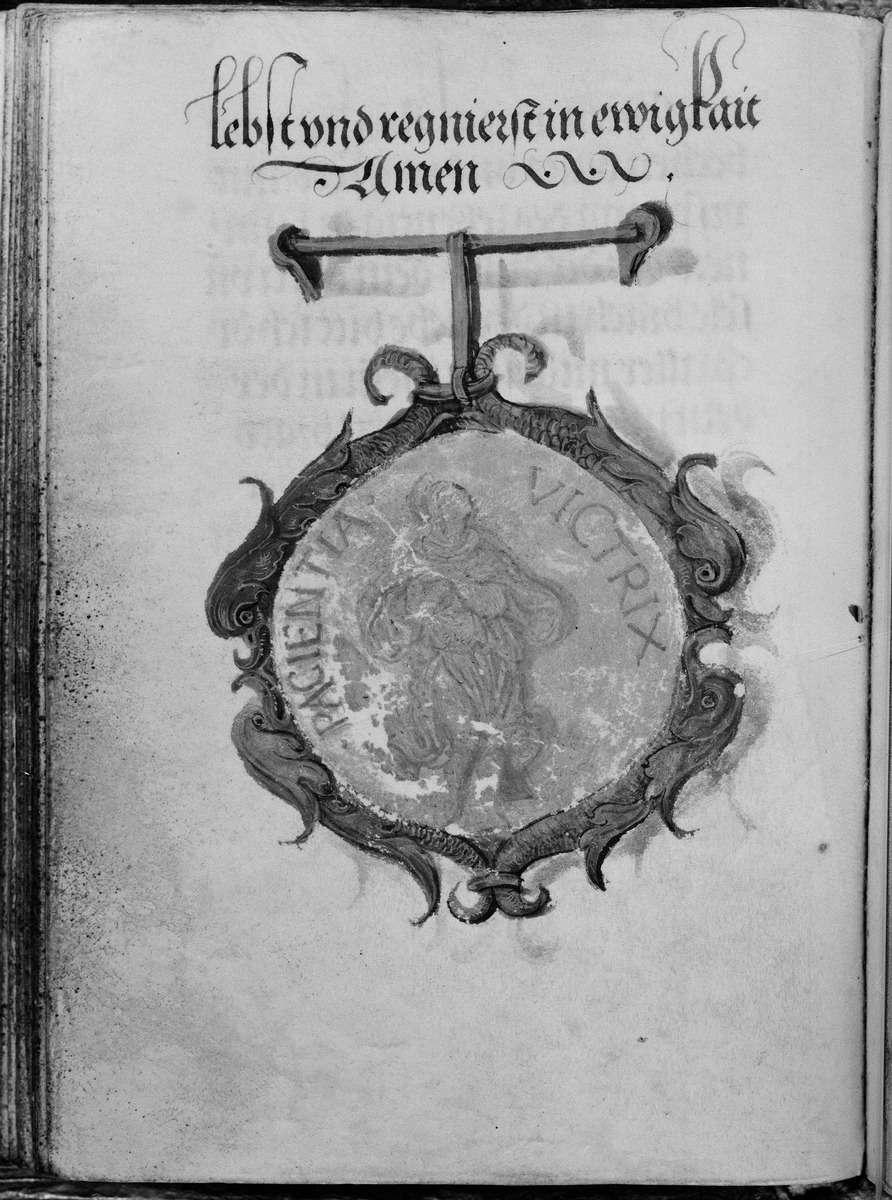 lebst vnd regnierst in ewigkait
Amen
PACIENTIA VICTRIX